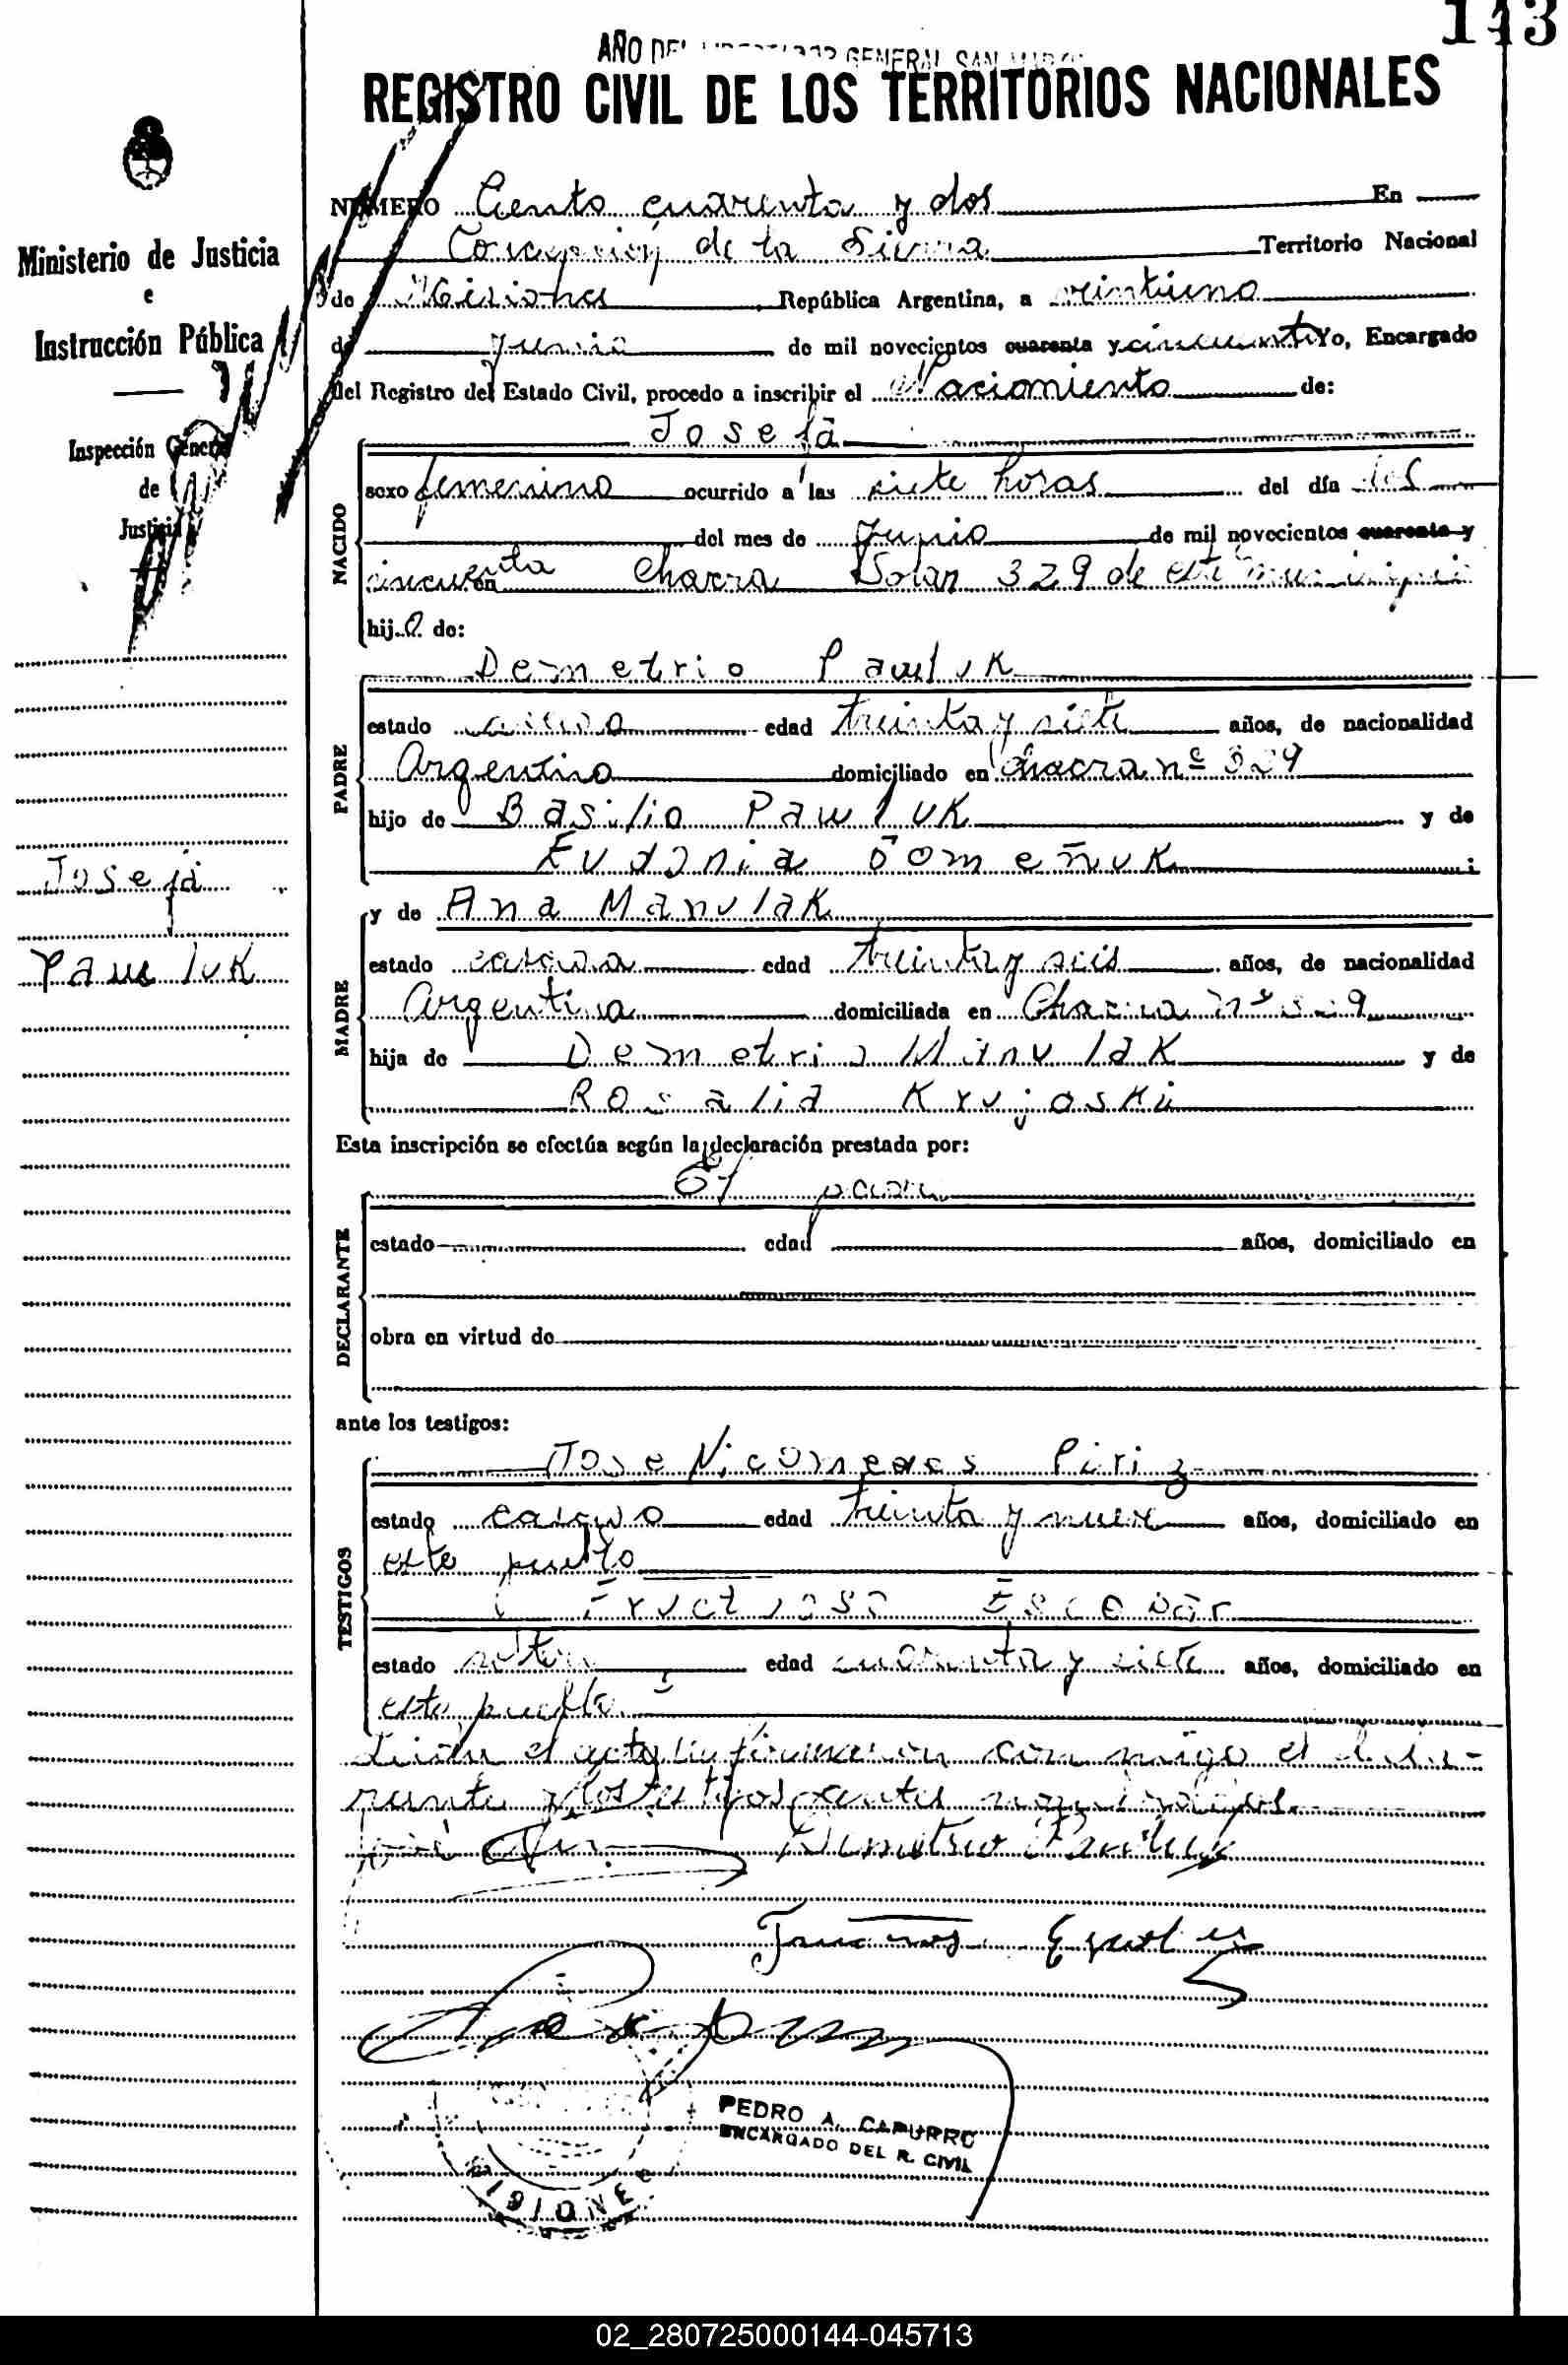 143
AÑO DEL LIBERTADOR GENERAL SAN MARTIN
REGISTRO CIVIL DE LOS TERRITORIOS NACIONALES
Ministerio de Justicia
e
Instrucción Pública
Inspección General
de
Justicia
Josefa
Pawluk
NUMERO Ciento cuarenta y dos En
Concepción de la Sierra Territorio Nacional
de Misiones, República Argentina, a veintiuno
de Junio de mil novecientos cuarenta y cincuenta Yo, Encargado
del Registro del Estado Civil, procedo a inscribir el Nacimiento de:
NACIDO
Josefa
sexo femenino ocurrido a las siete horas del día dos
del mes de Junio de mil novecientos cuarenta y
cincuenta en Chacra Solar 329 de este municipio
hija de:
PADRE
Demetrio Pawluk
estado casado edad treinta y siete años, de nacionalidad
Argentino domiciliado en Chacra nº 329
hijo de Basilio Pawluk y de
Eudonia Domeñuk;
MADRE
y de Ana Manulak
estado casada edad treinta y seis años, de nacionalidad
Argentina domiciliada en Chacra nº 329
hija de Demetrio Manulak y de
Rosalia Krujoski
Esta inscripción se efectúa según la declaración prestada por:
DECLARANTE
El padre
estado edad años, domiciliado en
obra en virtud de
ante los testigos:
TESTIGOS
Jose Nicomedes Piriz
estado casado edad treinta y nueve años, domiciliado en
este pueblo
Fructuoso Escobar
estado soltero edad cuarenta y siete años, domiciliado en
este pueblo.
Leida el acta la firmaron conmigo el decla-
rante y los testigos
Demetrio Pawluk
PEDRO A. CAPURRO
ENCARGADO DEL R. CIVIL
MISIONES
02_280725000144-045713